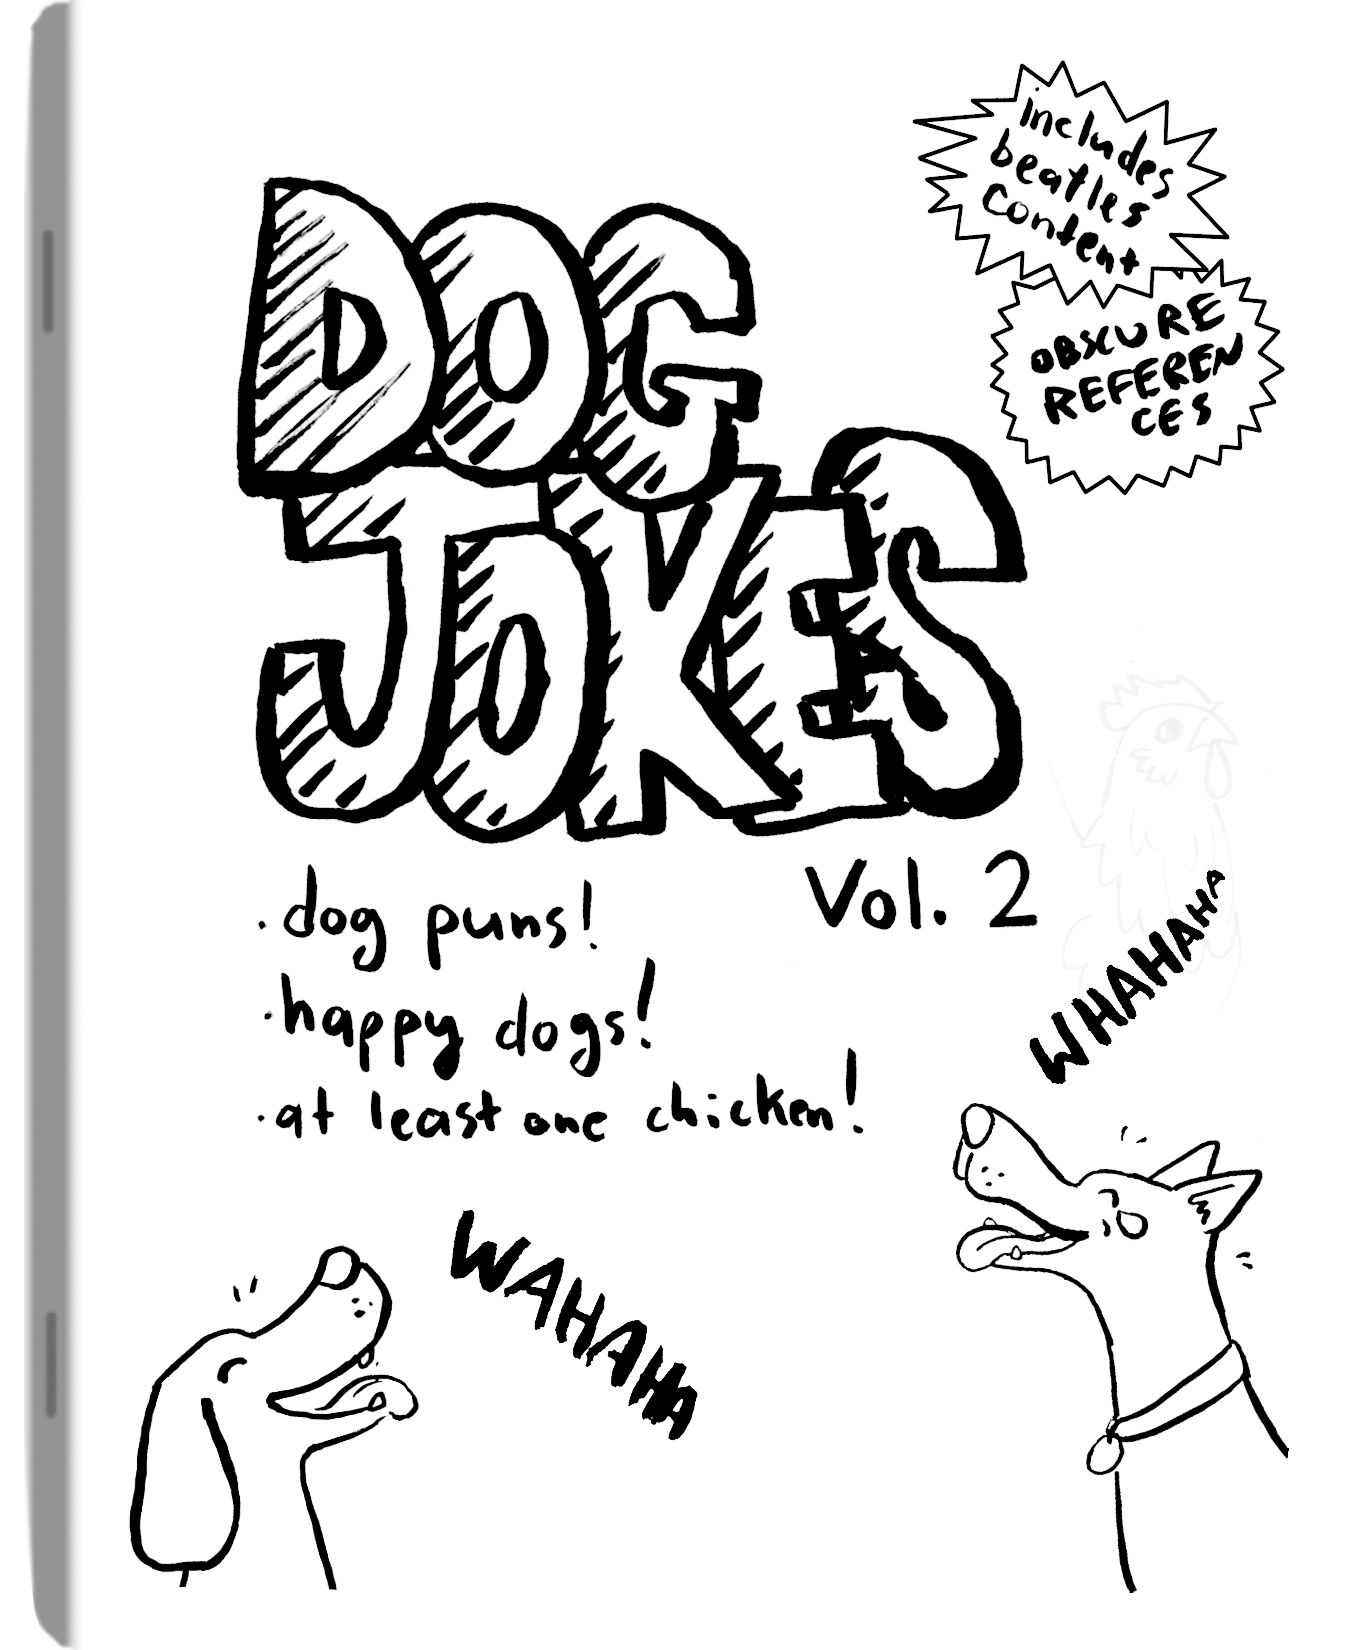 includes
beatles
content
OBSCURE
REFEREN
CES
DOG
JOKES
Vol. 2
· dog puns!
· happy dogs!
· at least one chicken!
WHAHAHAHA
WAHAHAHA